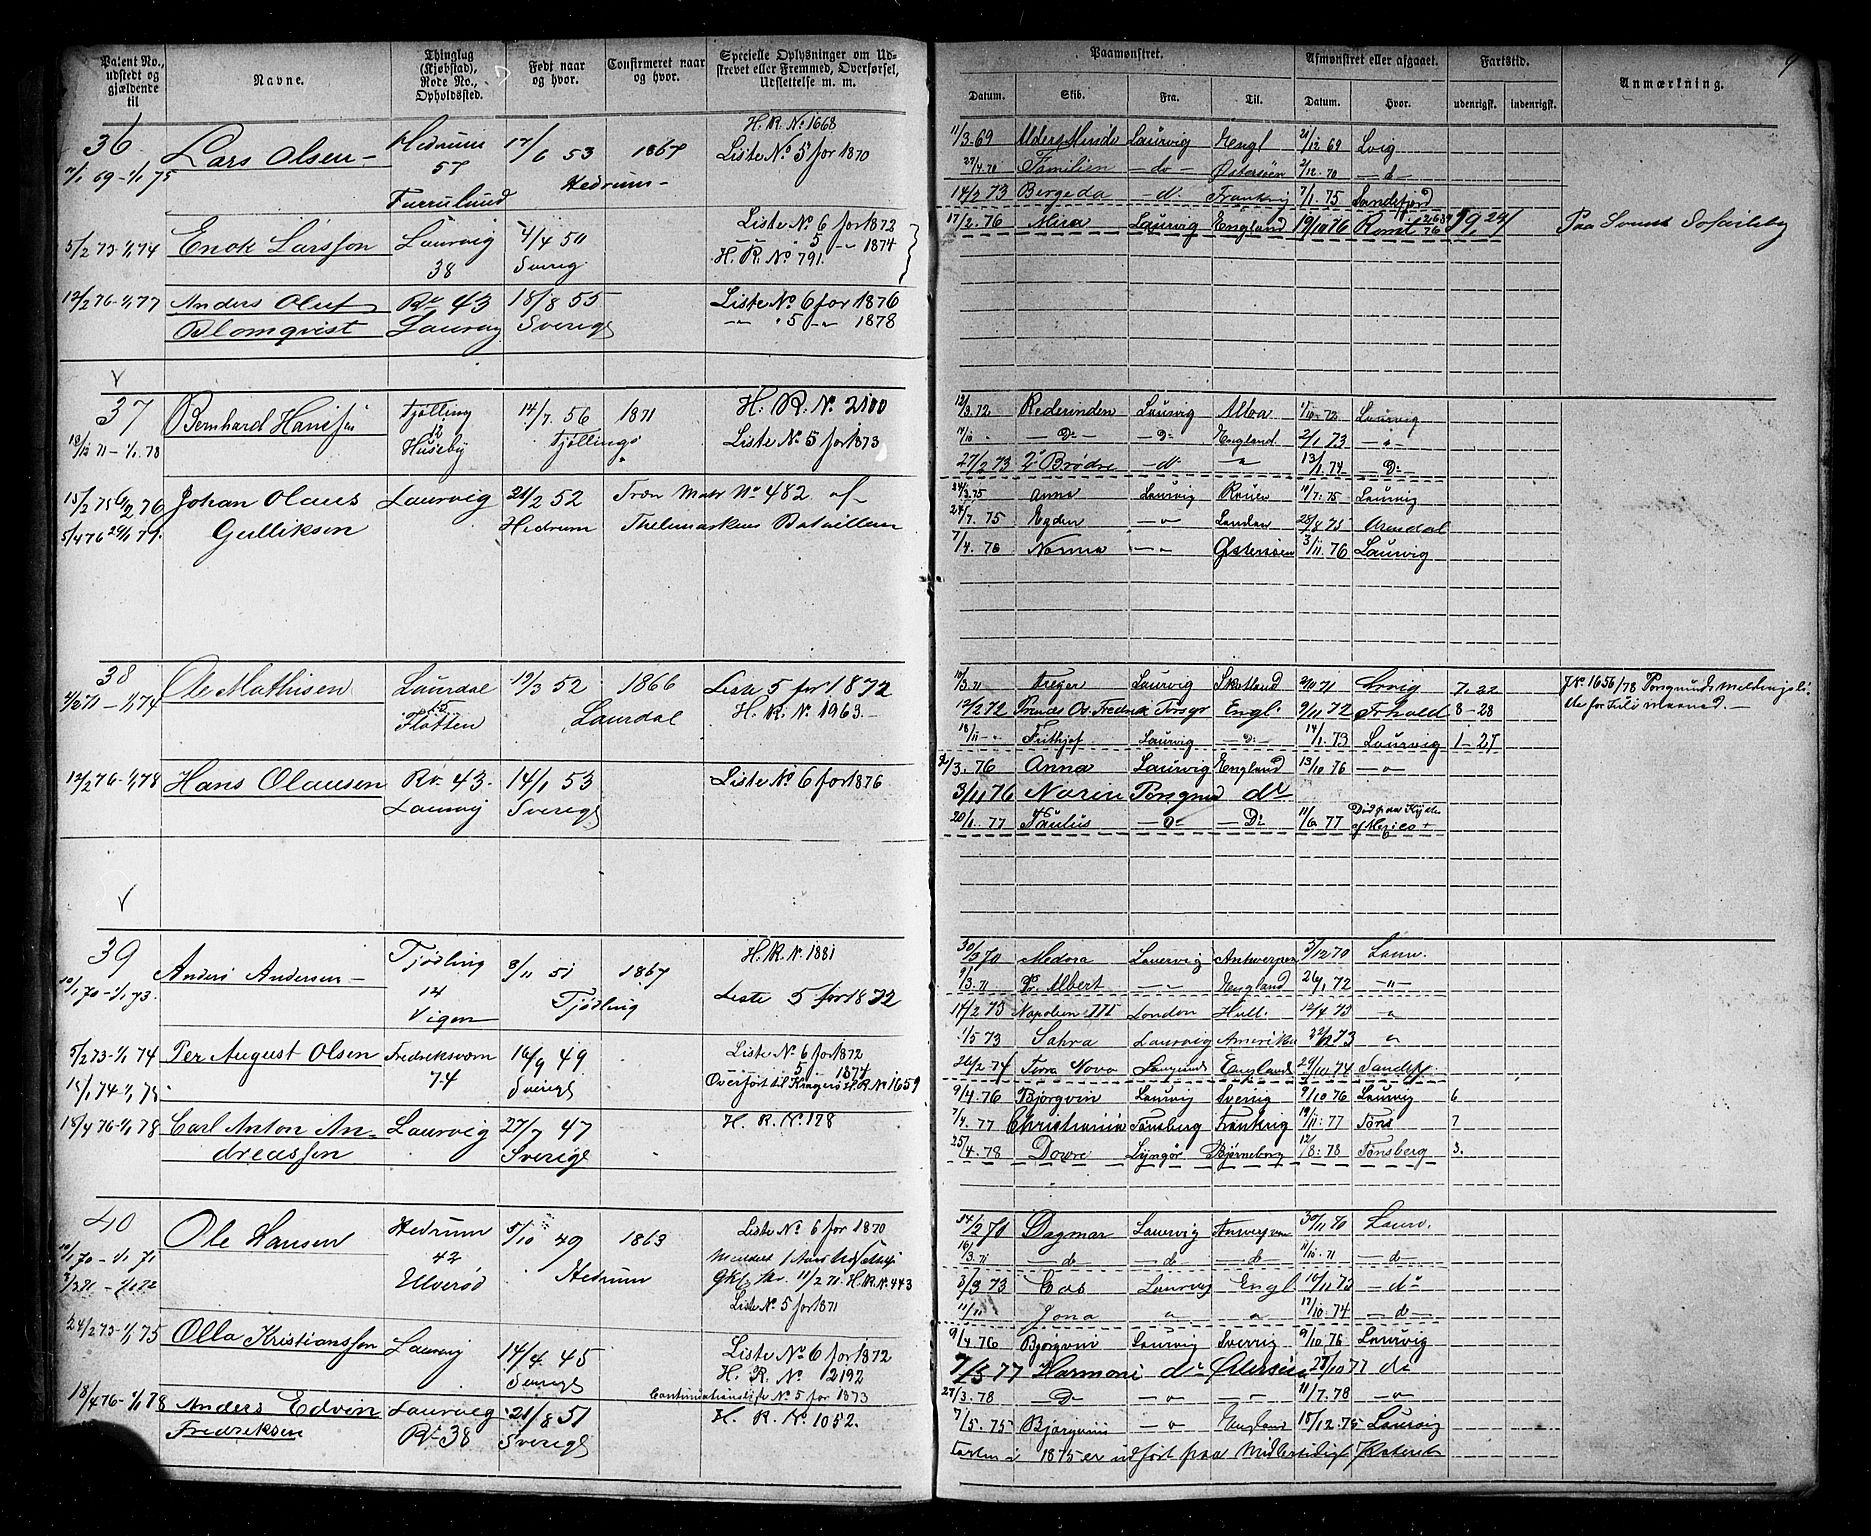 Patent No., udstedt og gjældende til
Navne.
Thinglag (Kjøbstad), Rode No., Opholdssted.
Født naar og hvor.
Confirmeret naar og hvor.
Specielle Oplysninger om Udstrevet eller Fremmed, Overførsel, Udslettelse m. m.
36
1/1 69 - 1/1 75
Lars Olsen
Hedrum
57
Furrulund
17/6 53
1867
Hedrum
H. R. No 1668
Liste No 5 for 1870
5/2 73 - 1/1 74
Enok Larsson
Laurvig
38
4/4 50
Sverig
Liste No 6 for 1872
" " 5 " 1874
H. R. No 791.
12/2 76 - 1/1 77
Anders Oluf
Blomqvist
Rv 43
Laurvig
18/8 55
Sverige
Liste No 6 for 1876
" 5 " 1878
37
18/12 71 - 1/1 78
Bernhard Hansen
Tjølling
12
Huseby
14/7 56
1871
Tjølling
H. R. No 2100
Liste No 5 for 1873
Johan Olaus
Gulliksen
Laurvig
21/2 52
Hedrum
Træn Matr No 482 af
Thelemarkens Bataillon
38
Ole Mathisen
Laurdal
15
Flåtten
19/3 52
1866
Laurdal
Liste 5 for 1872
H. R. No 1963.
12/2 76 - 1/1 78
Hans Olausen
Rv. 43.
Laurvig
14/1 53
Sverige
Liste No 6 for 1876
39
10/1 70 - 1/1 73.
Anders Andersen
Tjødling
14
Vigen
9/11 51
1867
Tjødling
H. R. No 1881
Liste 5 for 1872
5/2 73 - 1/1 74
15/1 74 - 1/1 75
Per August Olsen
Fredriksværn
74
16/9 49
Sverige
Liste No 6 for 1872
5 1874
Overført til Kragerø H. R. No 1659
18/4 76 - 1/1 78
Carl Anton An-
dreassen
Laurvig
27/7 47
Sverige
H. R. No 178
40
10/1 70 - 1/1 71
Ole Hansen
Hedrum
42
Ulverød
5/10 49
1863
Hedrum
Liste No 6 for 1870
11/2 71. H. R. No 443
Liste No 5 for 1871
24/2 73 - 1/1 75
Olla Kristiansson
Laurvig
14/4 45
Sverige
Liste No 6 for 1872
H. R. No 2192
Continuationsliste No 5 for 1873
18/4 76 - 1/1 78
Anders Edvin
Fredriksen
Laurvig
Rv 38
21/8 51
Sverige
H. R. No 1052.
9
Paamønstret.
Afmønstret eller afgaaet.
Fartstid.
Anmærkning.
Datum. Skib. Fra. Til. Datum. Hvor. udenrigsk. indenrigsk.
11/3 69 Laurvig Engl 21/12 69 Lvig
27/4 70 Familien - do - Østersöen 2/12 70 - d -
14/2 73 Bergeda - do Frankrig 7/1 75 Sandefjord
17/2 76 Mira Laurvig England 19/10 76
12/3 72 Rederinden Laurvig Alloa 1/10 72 Laurvig
- Do - - Do - England 2/1 73 - " -
27/2 73 2 Brødre - do - " 13/1 74 - Do -
24/3 75 Anna Laurvig Rouen 10/7 75 Laurvig
24/7 75 Egden - " - London 28/8 75 Arendal
7/4 76 Norma - " - Østersøen 3/11 76 Laurvig
10/3 71 Freyer Laurvig Skotland 2/10 71 Lrvig 7-22
J No 1656/78 Porsgrunds Meldingsli-
ste for Juli Maaned.
12/2 72 Prinds Os. Fredrik Porsgr Engl. 9/11 72 Frhald 8-28
18/11 - " Frithjof Laurvig - Do - 14/1 73 Laurvig 1-27
2/3 76 Anna Laurvig England 13/10 76 - " -
3/11 76 Porsgrund do
20/1 77 Paulus - D - - Do - 11/6 77 Død paa Kysten
af Mexico +
30/3 70 Medora Laurvig Antwerpen 3/12 70 Laurv.
9/3 71 Pr. Albert - " - England 26/1 72 - " -
17/2 73 Napoleon III London Hull. 12/4 73 "
1/5 73 Sahra Laurvig Amerika 22/12 73 "
26/2 74 Terra Nova Langesund England 29/10 74 Sandefj
9/4 76 Bjørgvin Laurvig Sverrig 9/10 76 Laurvig 6
7/4 77 Christiania Tønsberg Frankrig 19/11 77 Tøns 7
25/4 78 Dovre Lyngør Bjørneborg 12/8 78 Tønsberg 3.
14/2 70 Dagmar Laurvig Antwerpen 30/11 70 Laurv.
16/3 71 - d - - d - - d - 11/10 71 - d -
3/3 73 Eos Laurvig Engl 10/11 73 - do
Jona " " 17/10 74 - d -
9/4 76 Bjørgvin Laurvig Sverrig 9/10 76 Laurvig
7/3 77 Harmoni do Østersøen 27/10 77 do
27/3 78 - D - - " - - " - 11/7 78 - " -
7/5 75 Bjørgvin - " - England 18/12 75 Laurvig
Farten i 1875 er udført paa Midlertidigt Patent